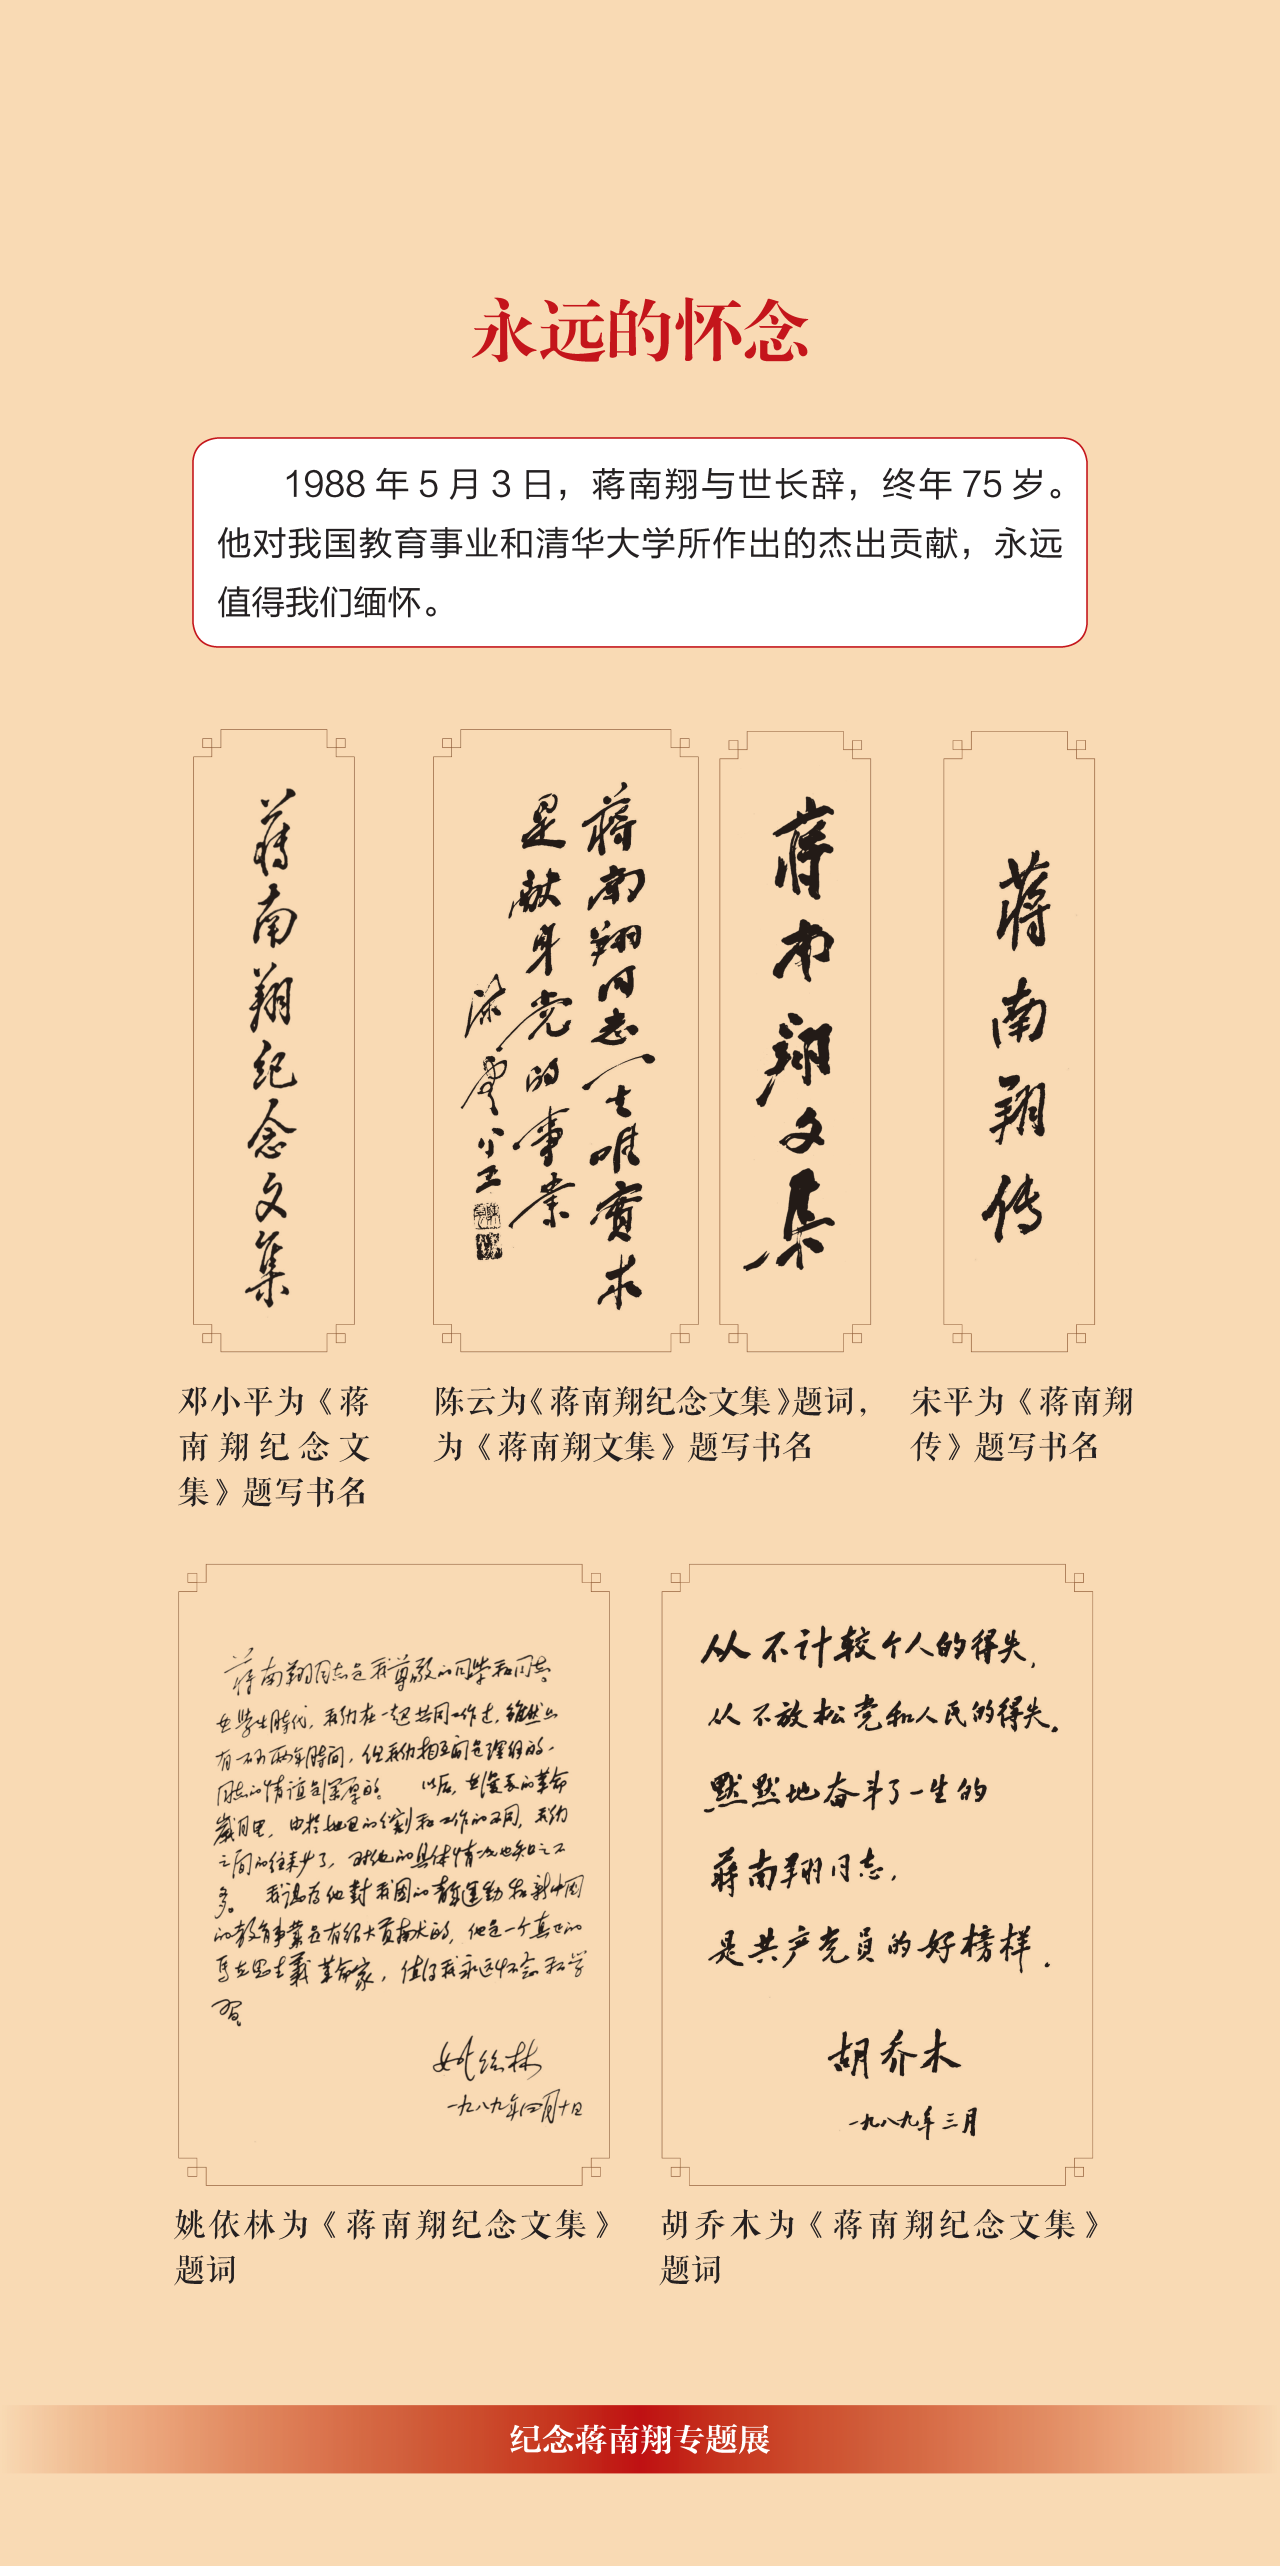 永远的怀念
1988 年 5 月 3 日，蒋南翔与世长辞，终年 75 岁。
他对我国教育事业和清华大学所作出的杰出贡献，永远
值得我们缅怀。
蒋南翔纪念文集
蒋南翔同志一生唯實求
是献身党的事業
陈雲
蒋南翔文集
蒋南翔传
邓小平为《蒋
南翔纪念文
集》题写书名
陈云为《蒋南翔纪念文集》题词，
为《蒋南翔文集》题写书名
宋平为《蒋南翔
传》题写书名
蒋南翔同志是我尊敬的同学和同志。
在学生時代，我们在一起共同工作过，雖然只
有一两年時间，但我们相互间是理解的，
同志的情谊是深厚的。 以后，在漫長的革命
歲月里，由於地区的分割和工作的不同，我们
之间的往来少了，对他的具体情况也知之不
多。 我认为他對我國的青年運動和新中國
的教育事業是有很大貢献的，他是一个真正的
马克思主義革命家，值得我永远怀念和学
習。
姚依林
一九八九年四月十日
从不计较个人的得失，
从不放松党和人民的得失。
默默地奋斗了一生的
蒋南翔同志，
是共产党员的好榜样．
胡乔木
一九八九年三月
姚依林为《蒋南翔纪念文集》
题词
胡乔木为《蒋南翔纪念文集》
题词
纪念蒋南翔专题展